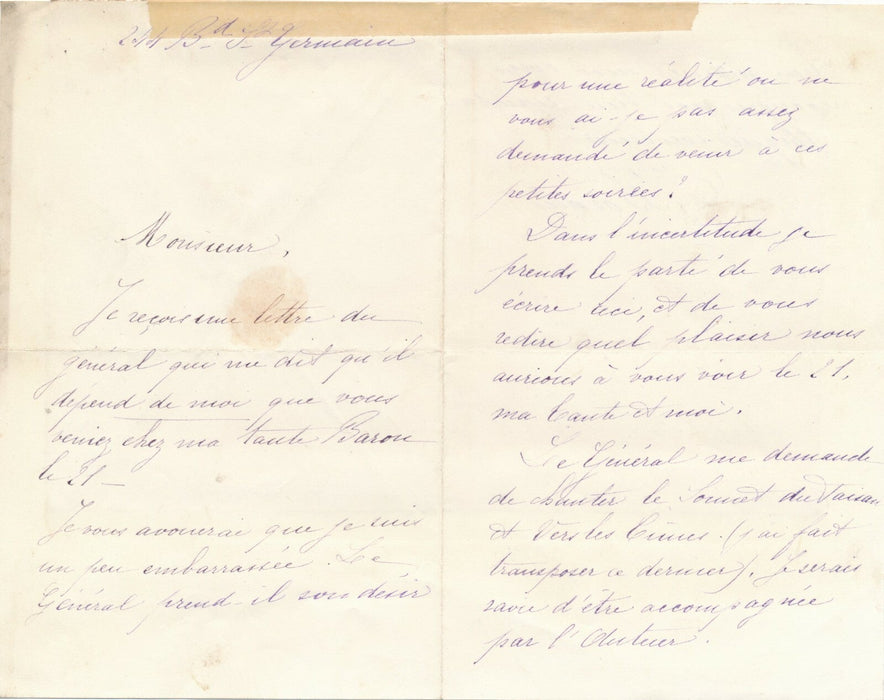 244 Bd St Germain
Monsieur,
Je reçois une lettre du
général qui me dit qu'il
dépend de moi que vous
veniez chez ma tante Baron
le 21 —
Je vous avouerai que je suis
un peu embarrassée. Le
Général prend-il son désir
pour une réalité ou ne
vous ai-je pas assez
demandé de venir à ces
petites soirées?
Dans l'incertitude je
prends le parti de vous
écrire ici, et de vous
redire quel plaisir nous
aurions à vous voir le 21,
ma tante et moi.
Le Général me demande
de chanter le Sonnet du
et Vers les Cimes. (j'ai fait
transposer ce dernier). Je serais
ravie d'être accompagnée
par l'Auteur.